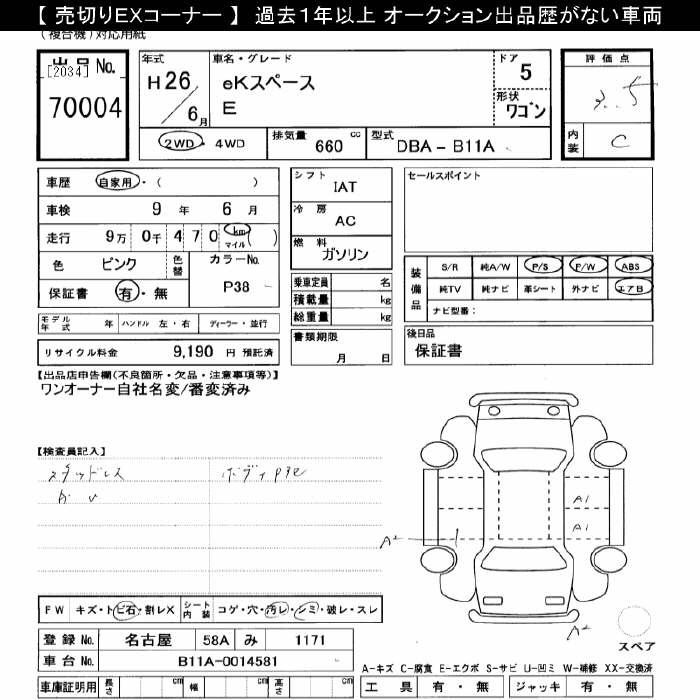 【 売切りEXコーナー 】 過去１年以上 オークション出品歴がない車両
(複合機)対応用紙
出品No.
[2034]
70004
年式
H26/6月
車名・グレード
eKスペース
E
ドア
5
形状
ワゴン
評価点
3.5
内装
C
2WD・4WD
排気量 660 cc
型式 DBA-B11A
車歴 自家用・( )
車検 9 年 6 月
走行 9万 0千 4 7 0 km マイル ( )
色 ピンク 色替 カラーNo. P38
保証書 有・無
シフト
IAT
冷房
AC
燃料
ガソリン
乗車定員 名
積載量 kg
総重量 kg
書類期限
月 日
セールスポイント
装備品
S/R 純A/W P/S P/W ABS
純TV 純ナビ 革シート 外ナビ エアB
ナビ型番：
後日品
保証書
モデル年式 年 ハンドル 左・右 ディーラー・並行
リサイクル料金 9,190 円 預託済
【出品店申告欄(不良箇所・欠品・注意事項等)】
ワンオーナー自社名変/番変済み
【検査員記入】
スタッドレス
ボディ
A1
A1
A2
A2
スペア
FW キズ・トビ石・割レX シート内装 コゲ・穴・汚レ・シミ・破レ・スレ
登録No. 名古屋 58A み 1171
車台No. B11A-0014581
車庫証明用 長さ cm 幅 cm 高さ cm
A-キズ C-腐食 E-エクボ S-サビ U-凹ミ W-補修 XX-交換済
工具 有・無 ジャッキ 有・無